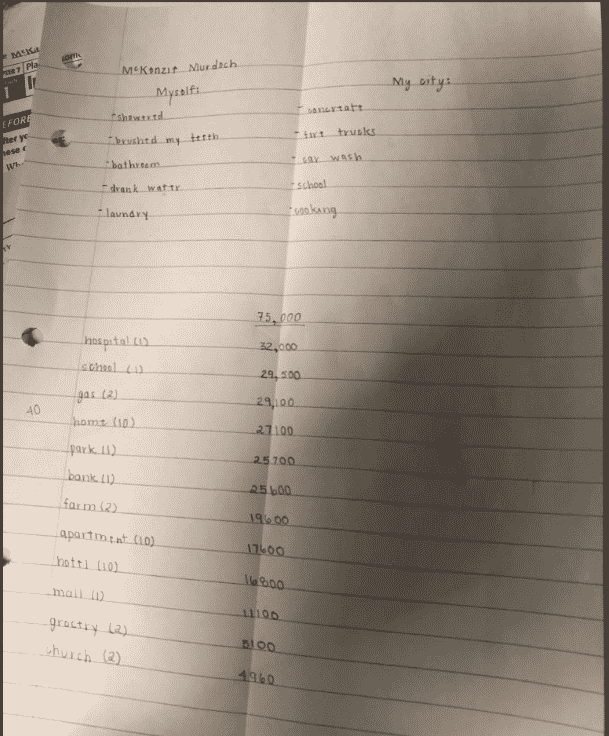 McKenzie Murdoch
Myself:
- showered
- brushed my teeth
- bathroom
- drank water
- laundry
My city:
- concreate
- fire trucks
- car wash
- school
- cooking
75,000
hospital (1) 32,000
school (1) 29,500
gas (2) 29,100
home (10) 27100
park (1) 25700
bank (1) 25600
farm (2) 19600
apartment (10) 17600
hotel (10) 16800
mall (1) 11100
grocery (2) 5100
church (2) 4960
40